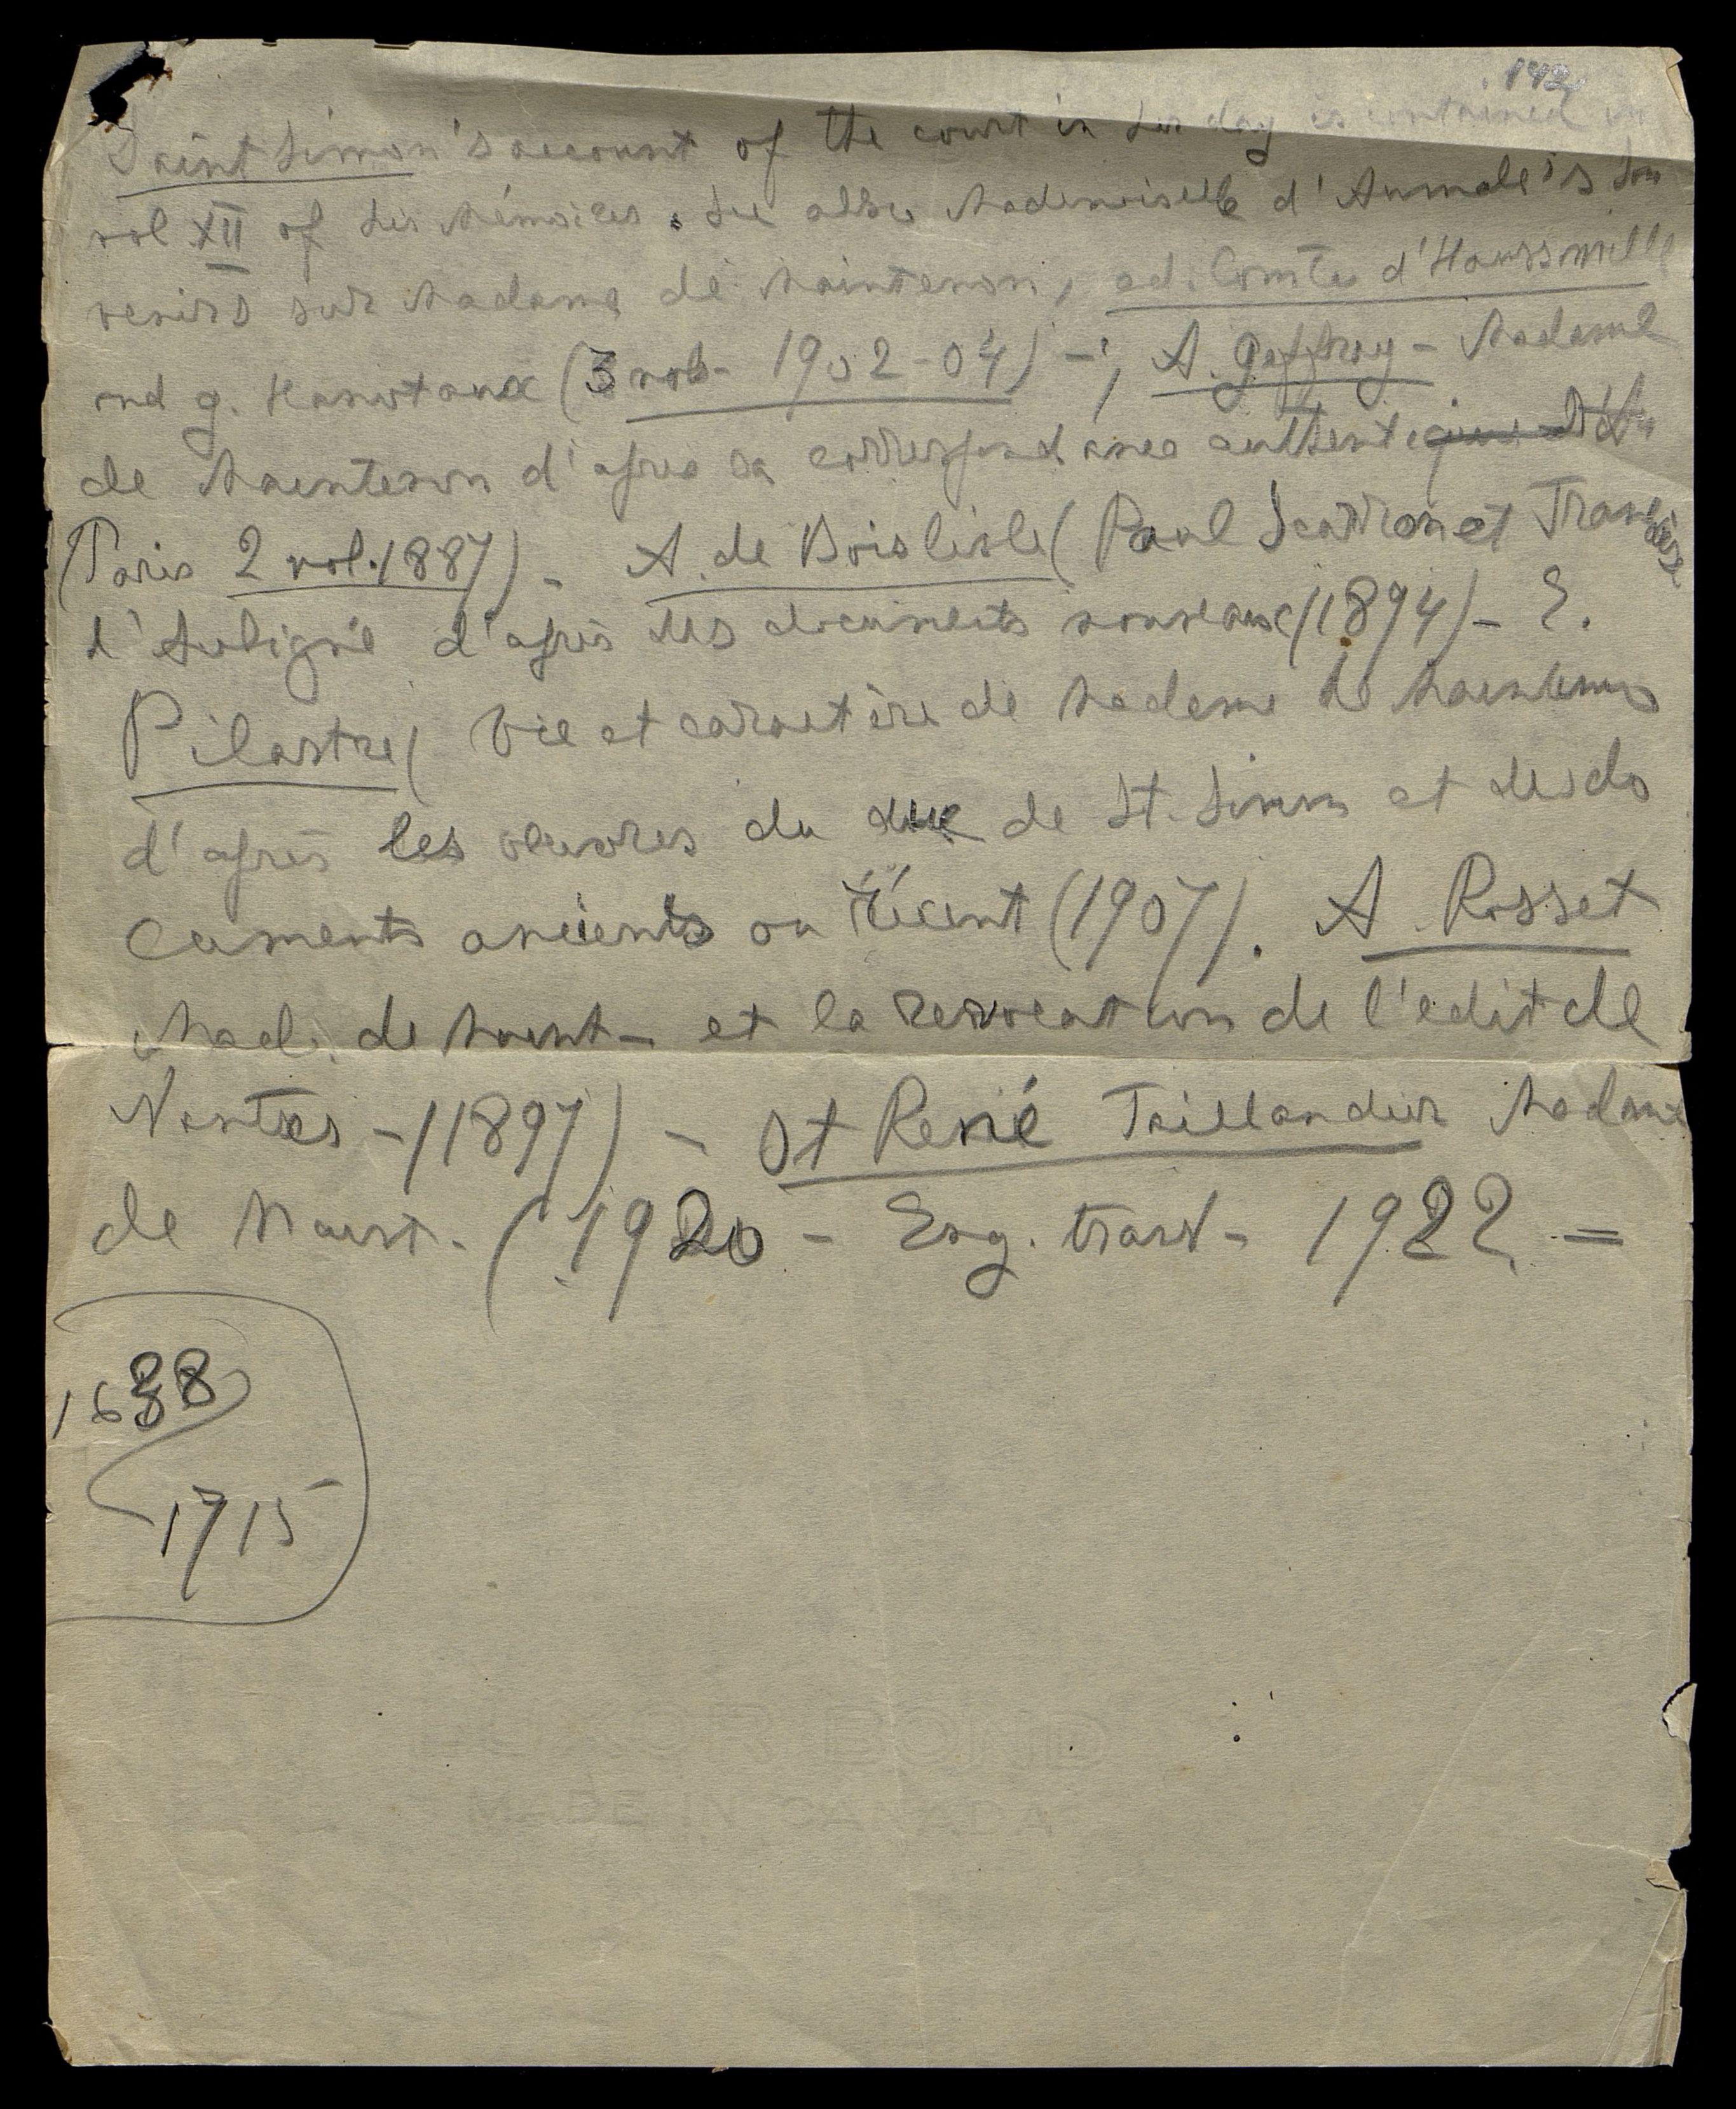 142
Saint Simon's account of the court in her day is contained in
vol XII of his Mémoires. See also Mademoiselle d'Aumale's Sou
venirs sur Madame de Maintenon, ed. Comte d'Haussonville
and G. Hanotaux (3 vols - 1902-04) -; A. Geffroy - Madame
de Maintenon d'apres sa correspondance authentique
(Paris 2 vol. 1887) - A. de Boislisle (Paul Scarron et Françoise
d'Aubigné d'après des documents nouveaux (1894) - E.
Pilastre ( Vie et caractère de Madame de Maintenon
d'après les oeuvres du duc de St. Simon et des do
cuments anciens ou récent (1907). A Rosset
Mad. de Maint - et la revocation de l'edit de
Nantes - (1897) - St René Taillandier Madame
de Maint. ( 1920 - Eng. transl - 1922 =
1638
1715
LUXOR BOND
MADE IN CANADA